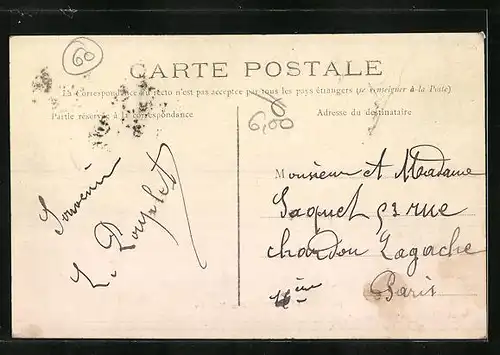 60
CARTE POSTALE
La Correspondance au recto n'est pas acceptée par tous les pays étrangers (se renseigner à la Poste)
Partie réservée à la correspondance
Adresse du destinataire
6,00
Souvenir
L.
Monsieur et Madame
Jaquet 53 rue
chardon Lagache
16ème Paris